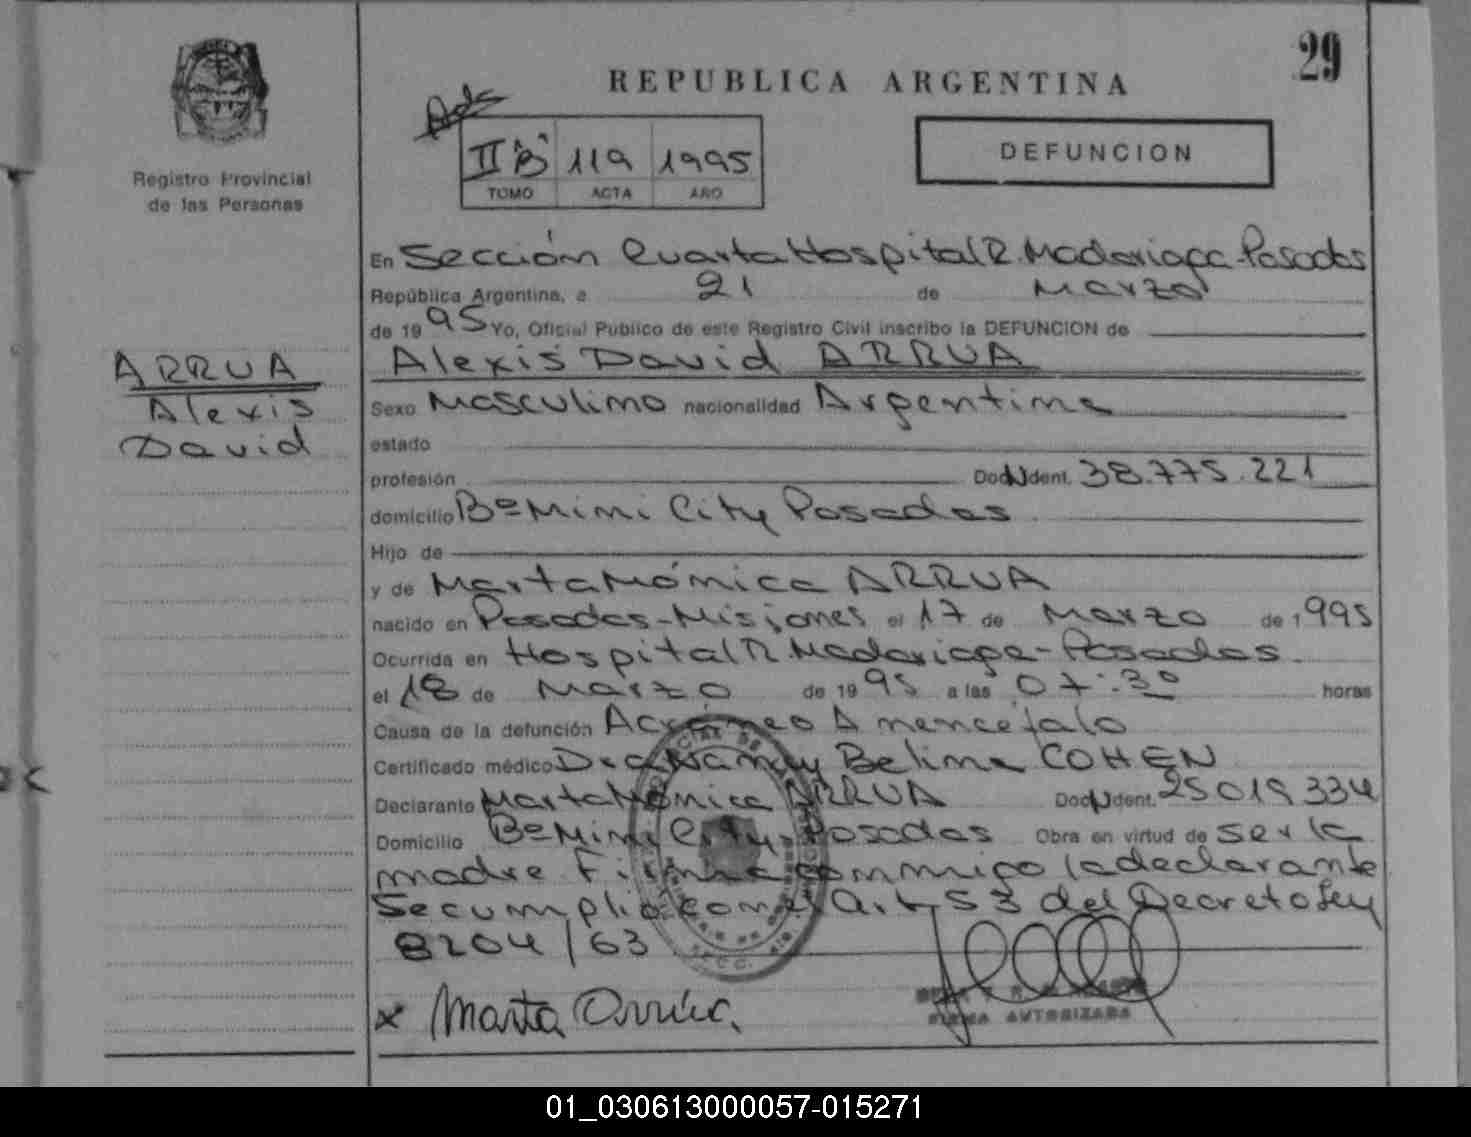 29
REPUBLICA ARGENTINA
Registro Provincial
de las Personas
II "B" 119 1995
TOMO ACTA AÑO
DEFUNCION
En Sección Cuarta Hospital R. Madariaga - Posadas
República Argentina, a 21 de Marzo
de 1995 Yo, Oficial Público de este Registro Civil inscribo la DEFUNCION de
ARRUA
Alexis
David
Alexis David ARRUA
Sexo Masculino nacionalidad Argentina
estado
profesión Doc N Ident. 38.775.221
domicilio Bº Mini City Posadas
Hijo de
y de Marta Mónica ARRUA
nacido en Posadas - Misiones el 17 de Marzo de 1995
Ocurrida en Hospital R. Madariaga - Posadas
el 18 de Marzo de 1995 a las 07:30 horas
Causa de la defunción Acráneo Anencéfalo
Certificado médico Dra Nancy Belina COHEN
Declarante Marta Mónica ARRUA Doc N Ident. 25019334
Domicilio Bº Mini City, Posadas Obra en virtud de ser la
madre Firma conmigo la declarante
Se cumplió con el Art 53 del Decreto Ley
8204/63
x Marta Arrúa.
FIRMA AUTORIZADA
01_030613000057-015271